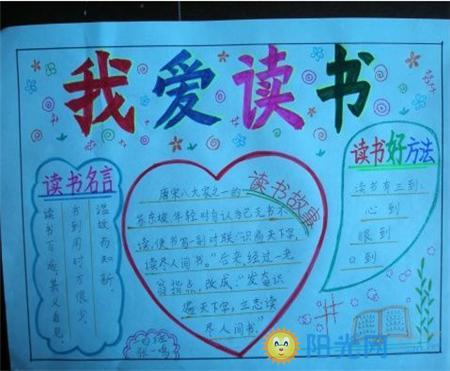 我爱读书
读书名言
温故而知新。
书到用时方恨少
读书百遍，其义自见。
读书故事
唐宋八大家之一的
苏东坡，年轻时自认为已无书不
读，便书写一副对联“识遍天下字，
读尽人间书。”后来经过一老
翁指点，改成：“发奋识
遍天下字，立志读
尽人间书”
读书好方法
读书有三到：
心到
眼到
口到
阳光网